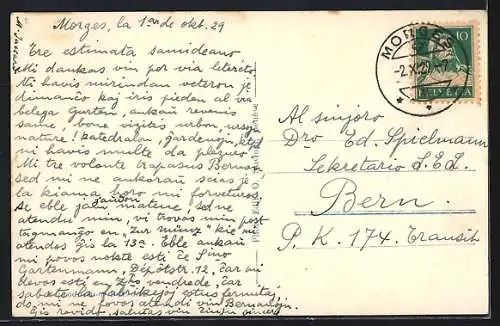 Morges, la 1an de okt. 29
Tre estimata samideano
Mi dankas vin por via letereto,
Ni havis mirindan veteron je
dimanĉo kaj iris pieden al via
belega Gurten, ankaŭ revenis
same, bone vizitis urbon, ursojn
nature! katedralon, gardenojn, ktp
ni havis multe da plezuro
Mi tre volonte trapasus Bernon
sed mi ne ankoraŭ scias je
la kiama horo mi forveturos
Se eble ĵaŭdon matene, sed ne
atendu min, vi trovos min post
tagmanĝo en "Zur Münz" kie mi
atendos ĝis la 13a. Eble ankaŭ
mi povos nokte esti ĉe Sino
Gartenmann, Depôtstr. 12, ĉar mi
devos esti en vendrede, ĉar
sabate la fabrikejoj estus fermitaj,
do mi ne povos atendi vin
Ĝis revido, salutas vin
MORGES
-2.X.29.-7
10
HELVETIA
Al sinjoro
Dro Ed. Spielmann
Sekretario
Bern.
P. K. 174. Transit